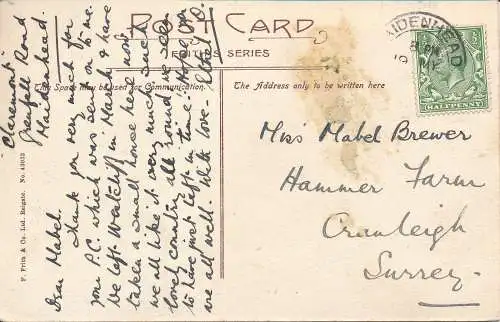 POST CARD
FRITH'S SERIES
This Space may be used for Communication.
The Address only to be written here
MAIDENHEAD
HALFPENNY
Miss Mabel Brewer
Hammer Farm
Cranleigh
Surrey
F. Frith & Co., Ltd., Reigate. No. 43033
"Claremont"
Grenfell Road
Maidenhead.
Dear Mabel.
Thank you very much for
your P.C. which was sent on to me.
We left Westcliff in March & have
taken a small house here now
we all like it very much such
lovely country all round we seem
to have just left in time. Hope you
are all well. With love